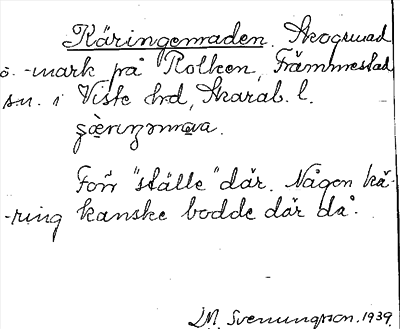 Käringemaden. Skogsmad
o. -mark på Rolken, Främmestad
sn. i Viste hd, Skarab. l.
Förr "ställe" där. Någon kä-
-ring kanske bodde där då.
LM. Svenungsson. 1939.